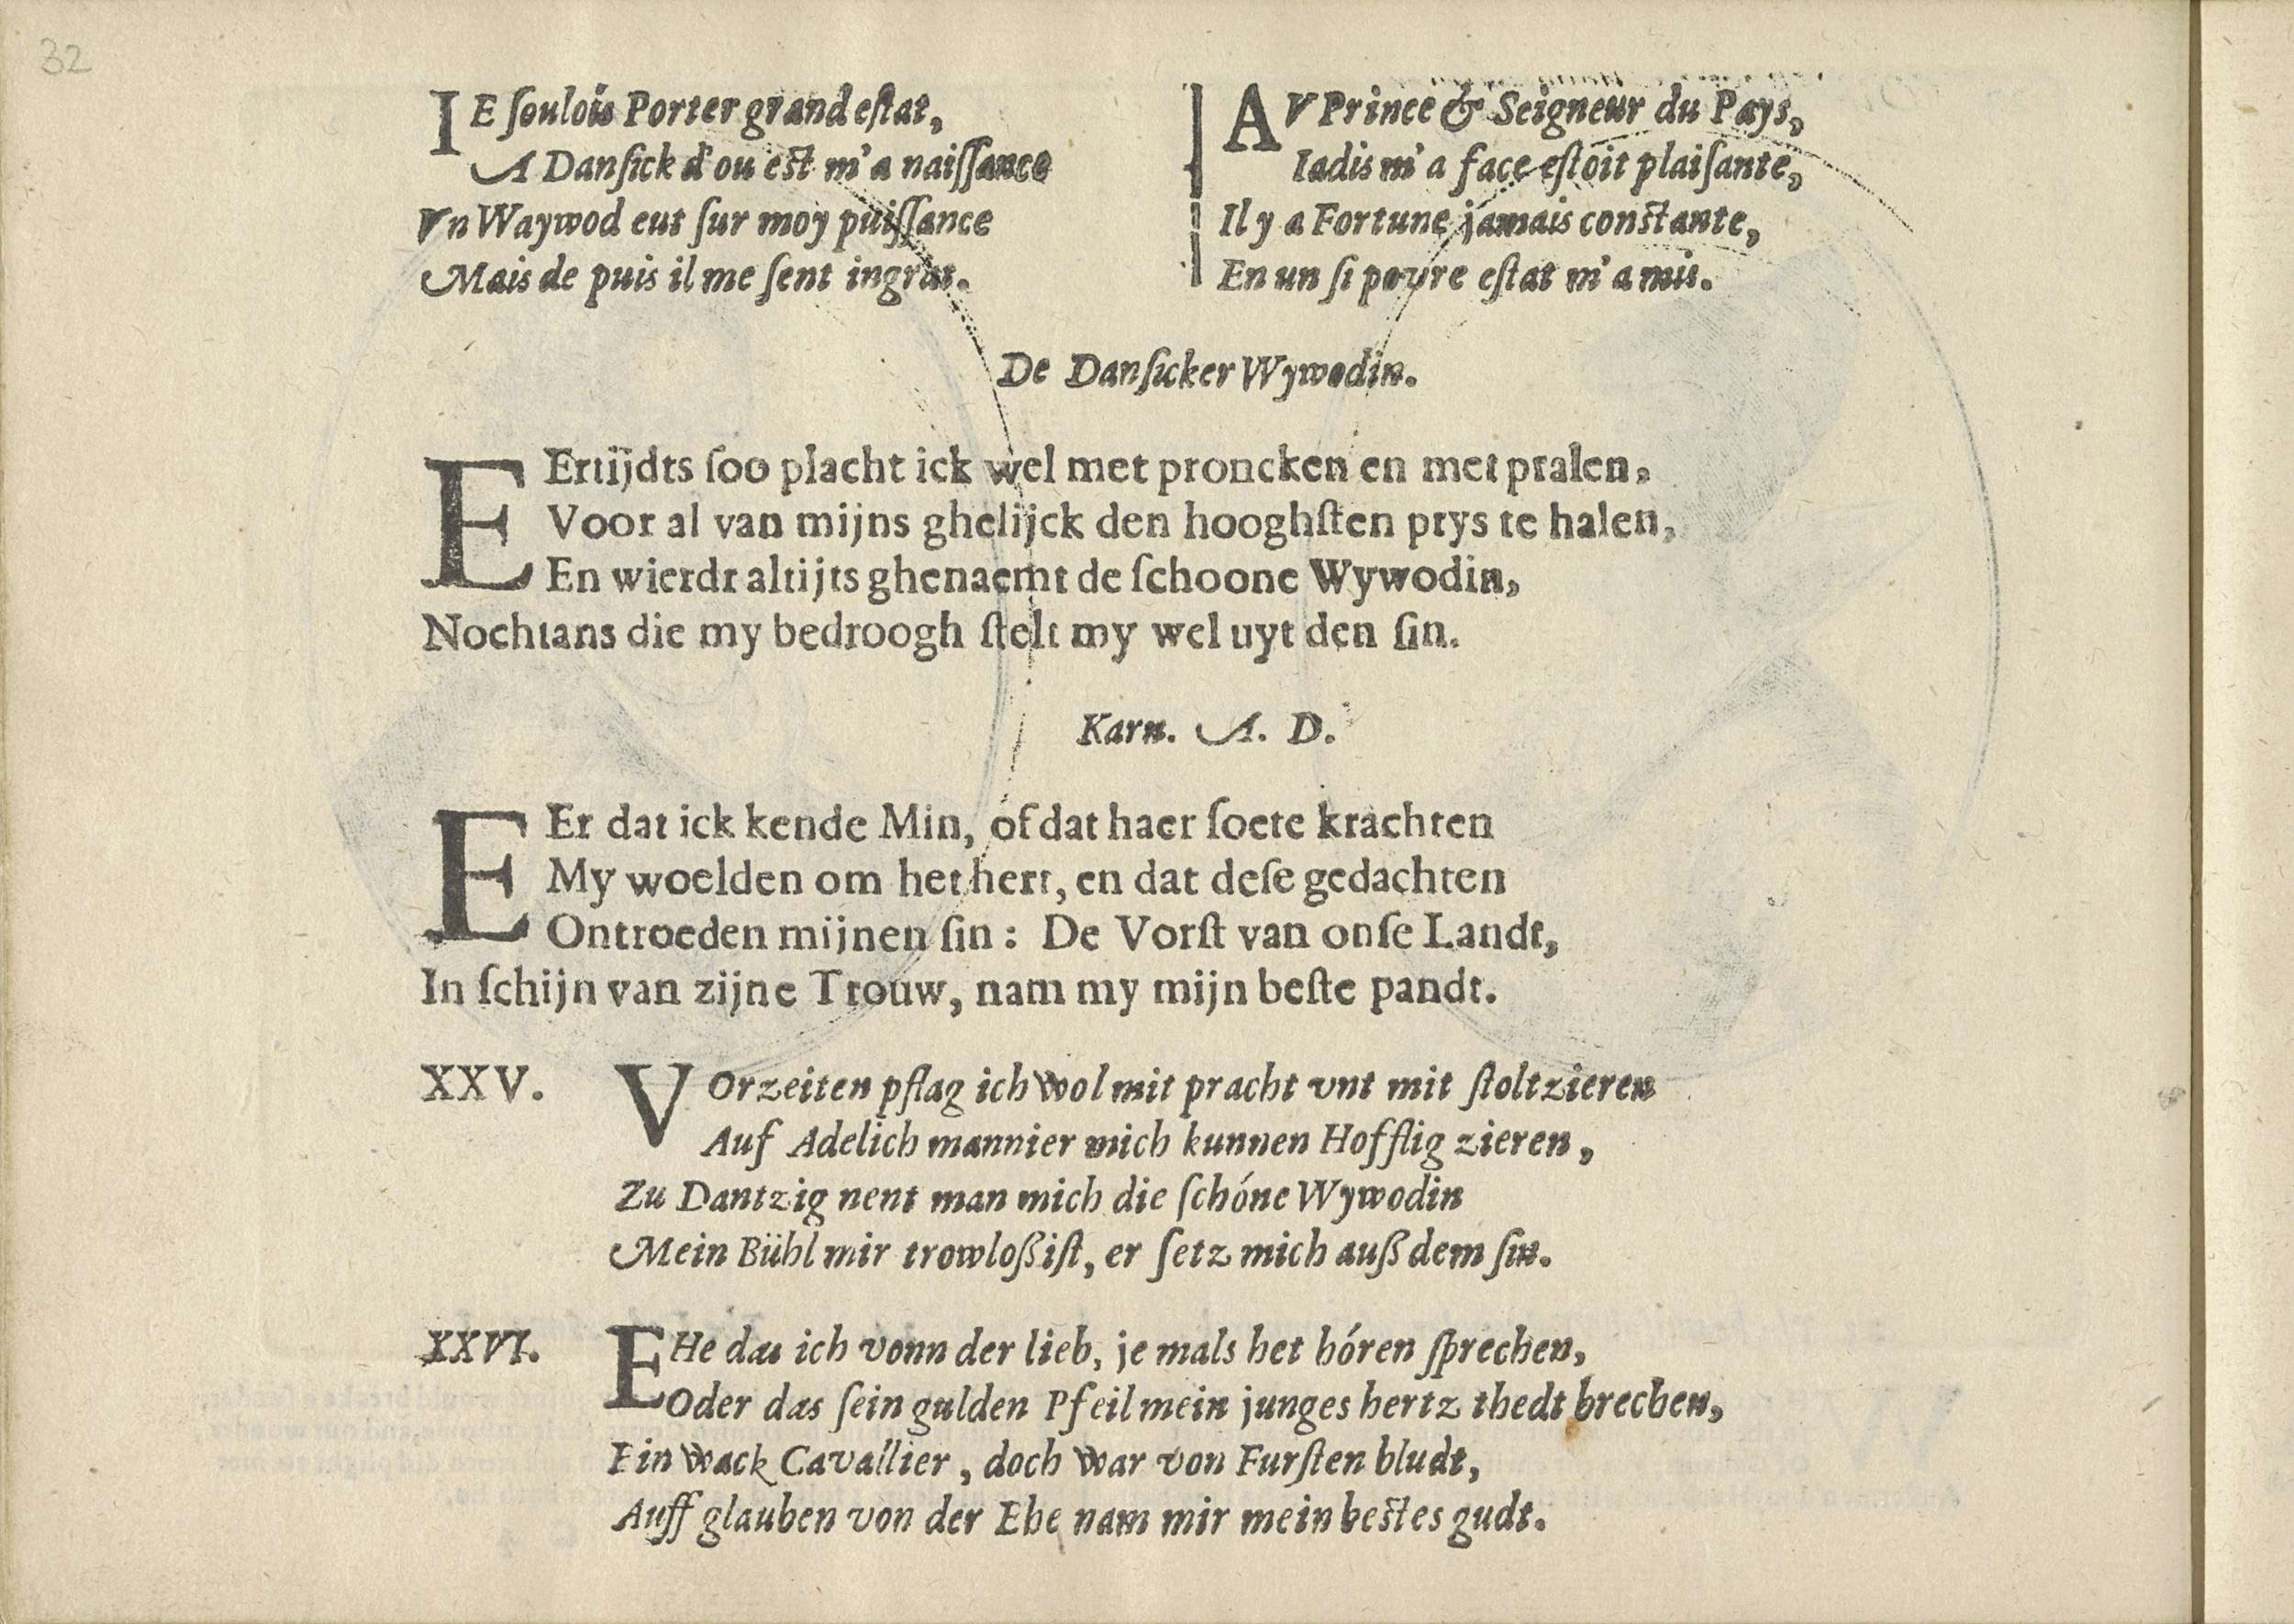 32
IE ſoulois Porter grand eſtat,
A Danſick d'ou eſt m'a naiſſance
Vn Waywod eut ſur moy puiſſance
Mais de puis il me ſent ingrat.
AV Prince & Seigneur du Pays,
Iadis m'a face eſtoit plaiſante,
Il y a Fortune jamais conſtante,
En un ſi povre eſtat m'a mis.
De Danſicker Wywodin.
EErtijdts ſoo placht ick wel met proncken en met pralen,
Voor al van mijns ghelijck den hooghſten prys te halen,
En wierdt altijts ghenaemt de ſchoone Wywodin,
Nochtans die my bedroogh ſtelt my wel uyt den ſin.
Karn. A. D.
EEr dat ick kende Min, of dat haer ſoete krachten
My woelden om het hert, en dat deſe gedachten
Ontroeden mijnen ſin: De Vorſt van onſe Landt,
In ſchijn van zijne Trouw, nam my mijn beſte pandt.
XXV. VOrzeiten pflag ich wol mit pracht vnt mit ſtoltzieren
Auf Adelich mannier mich kunnen Hofflig zieren,
Zu Dantzig nent man mich die ſchóne Wywodin
Mein Bühl mir trowloß iſt, er ſetz mich auß dem ſin.
XXVI. EHe das ich vonn der lieb, je mals het hóren ſprechen,
Oder das ſein gulden Pfeil mein junges hertz thedt brechen,
Ein wack Cavallier, doch war von Furſten bludt,
Auff glauben von der Ehe nam mir mein beſtes gudt.